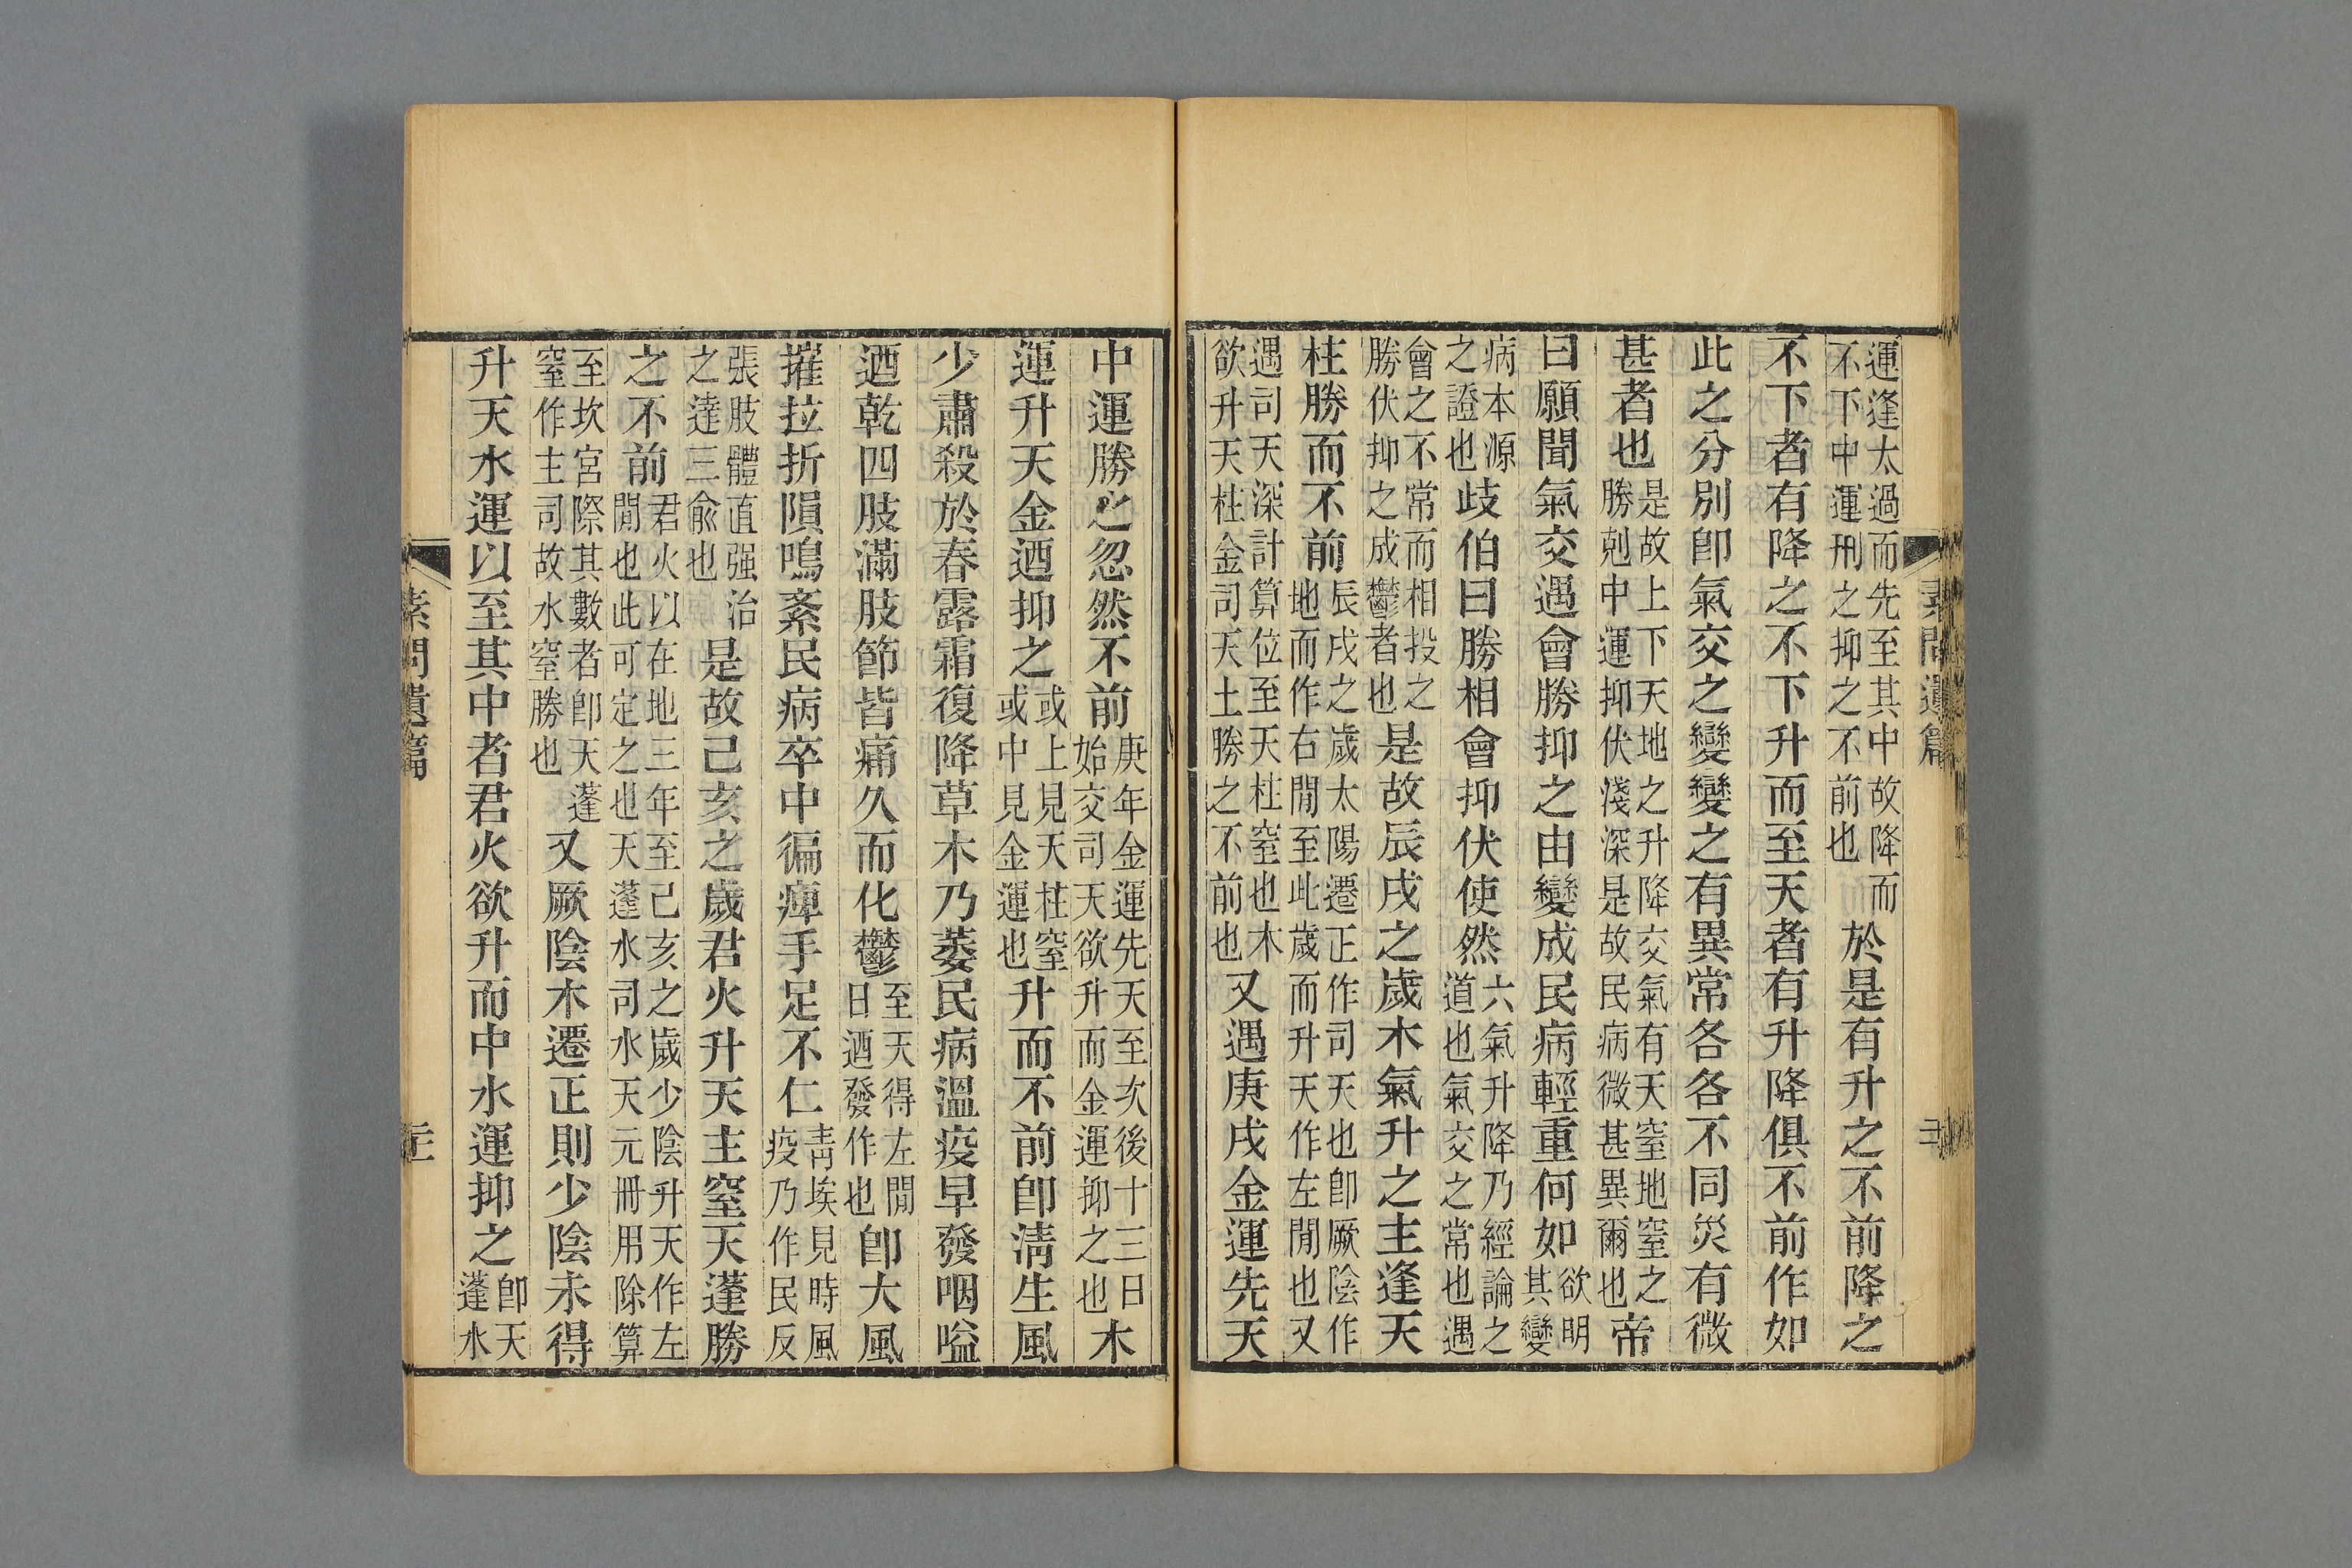 運逢太過而先至其中故降而
不下中運刑之抑之不前也
於是有升之不前降之
不下者有降之不下升而至天者有升降俱不前作如
此之分別卽氣交之變變之有異常各各不同災有微
甚者也
是故上下天地之升降交氣有天窒地窒之
勝剋中運抑伏淺深是故民病微甚異爾也
帝
曰願聞氣交遇會勝抑之由變成民病輕重何如
欲明
其變
病本源
之證也
歧伯曰勝相會抑伏使然
六氣升降乃經論之
道也氣交之常也遇
會之不常而相投之
勝伏抑之成鬱者也
是故辰戌之歲木氣升之主逢天
柱勝而不前
辰戌之歲太陽遷正作司天也卽厥陰作
地而作右間至此歲而升天作左間也又
遇司天深計算位至天柱窒也木
欲升天柱金司天土勝之不前也
又遇庚戌金運先天
素問遺篇
中運勝之忽然不前
庚年金運先天至次後十三日
始交司天欲升而金運抑之也
木
運升天金迺抑之
或上見天柱窒
或中見金運也
升而不前卽淸生風
少肅殺於春露霜復降草木乃萎民病溫疫早發咽嗌
迺乾四肢滿肢節皆痛久而化鬱
至天得左間
日迺發作也
卽大風
摧拉折隕鳴紊民病卒中徧痺手足不仁
靑埃見時風
疫乃作民反
張肢體直强治
之達三俞也
是故己亥之歲君火升天主窒天蓬勝
之不前
君火以在地三年至己亥之歲少陰升天作左
間也此可定之也天蓬水司水天元冊用除算
至坎宮際其數者卽天蓬
窒作主司故水窒勝也
又厥陰木遷正則少陰未得
升天水運以至其中者君火欲升而中水運抑之
卽天
蓬水
素問遺篇